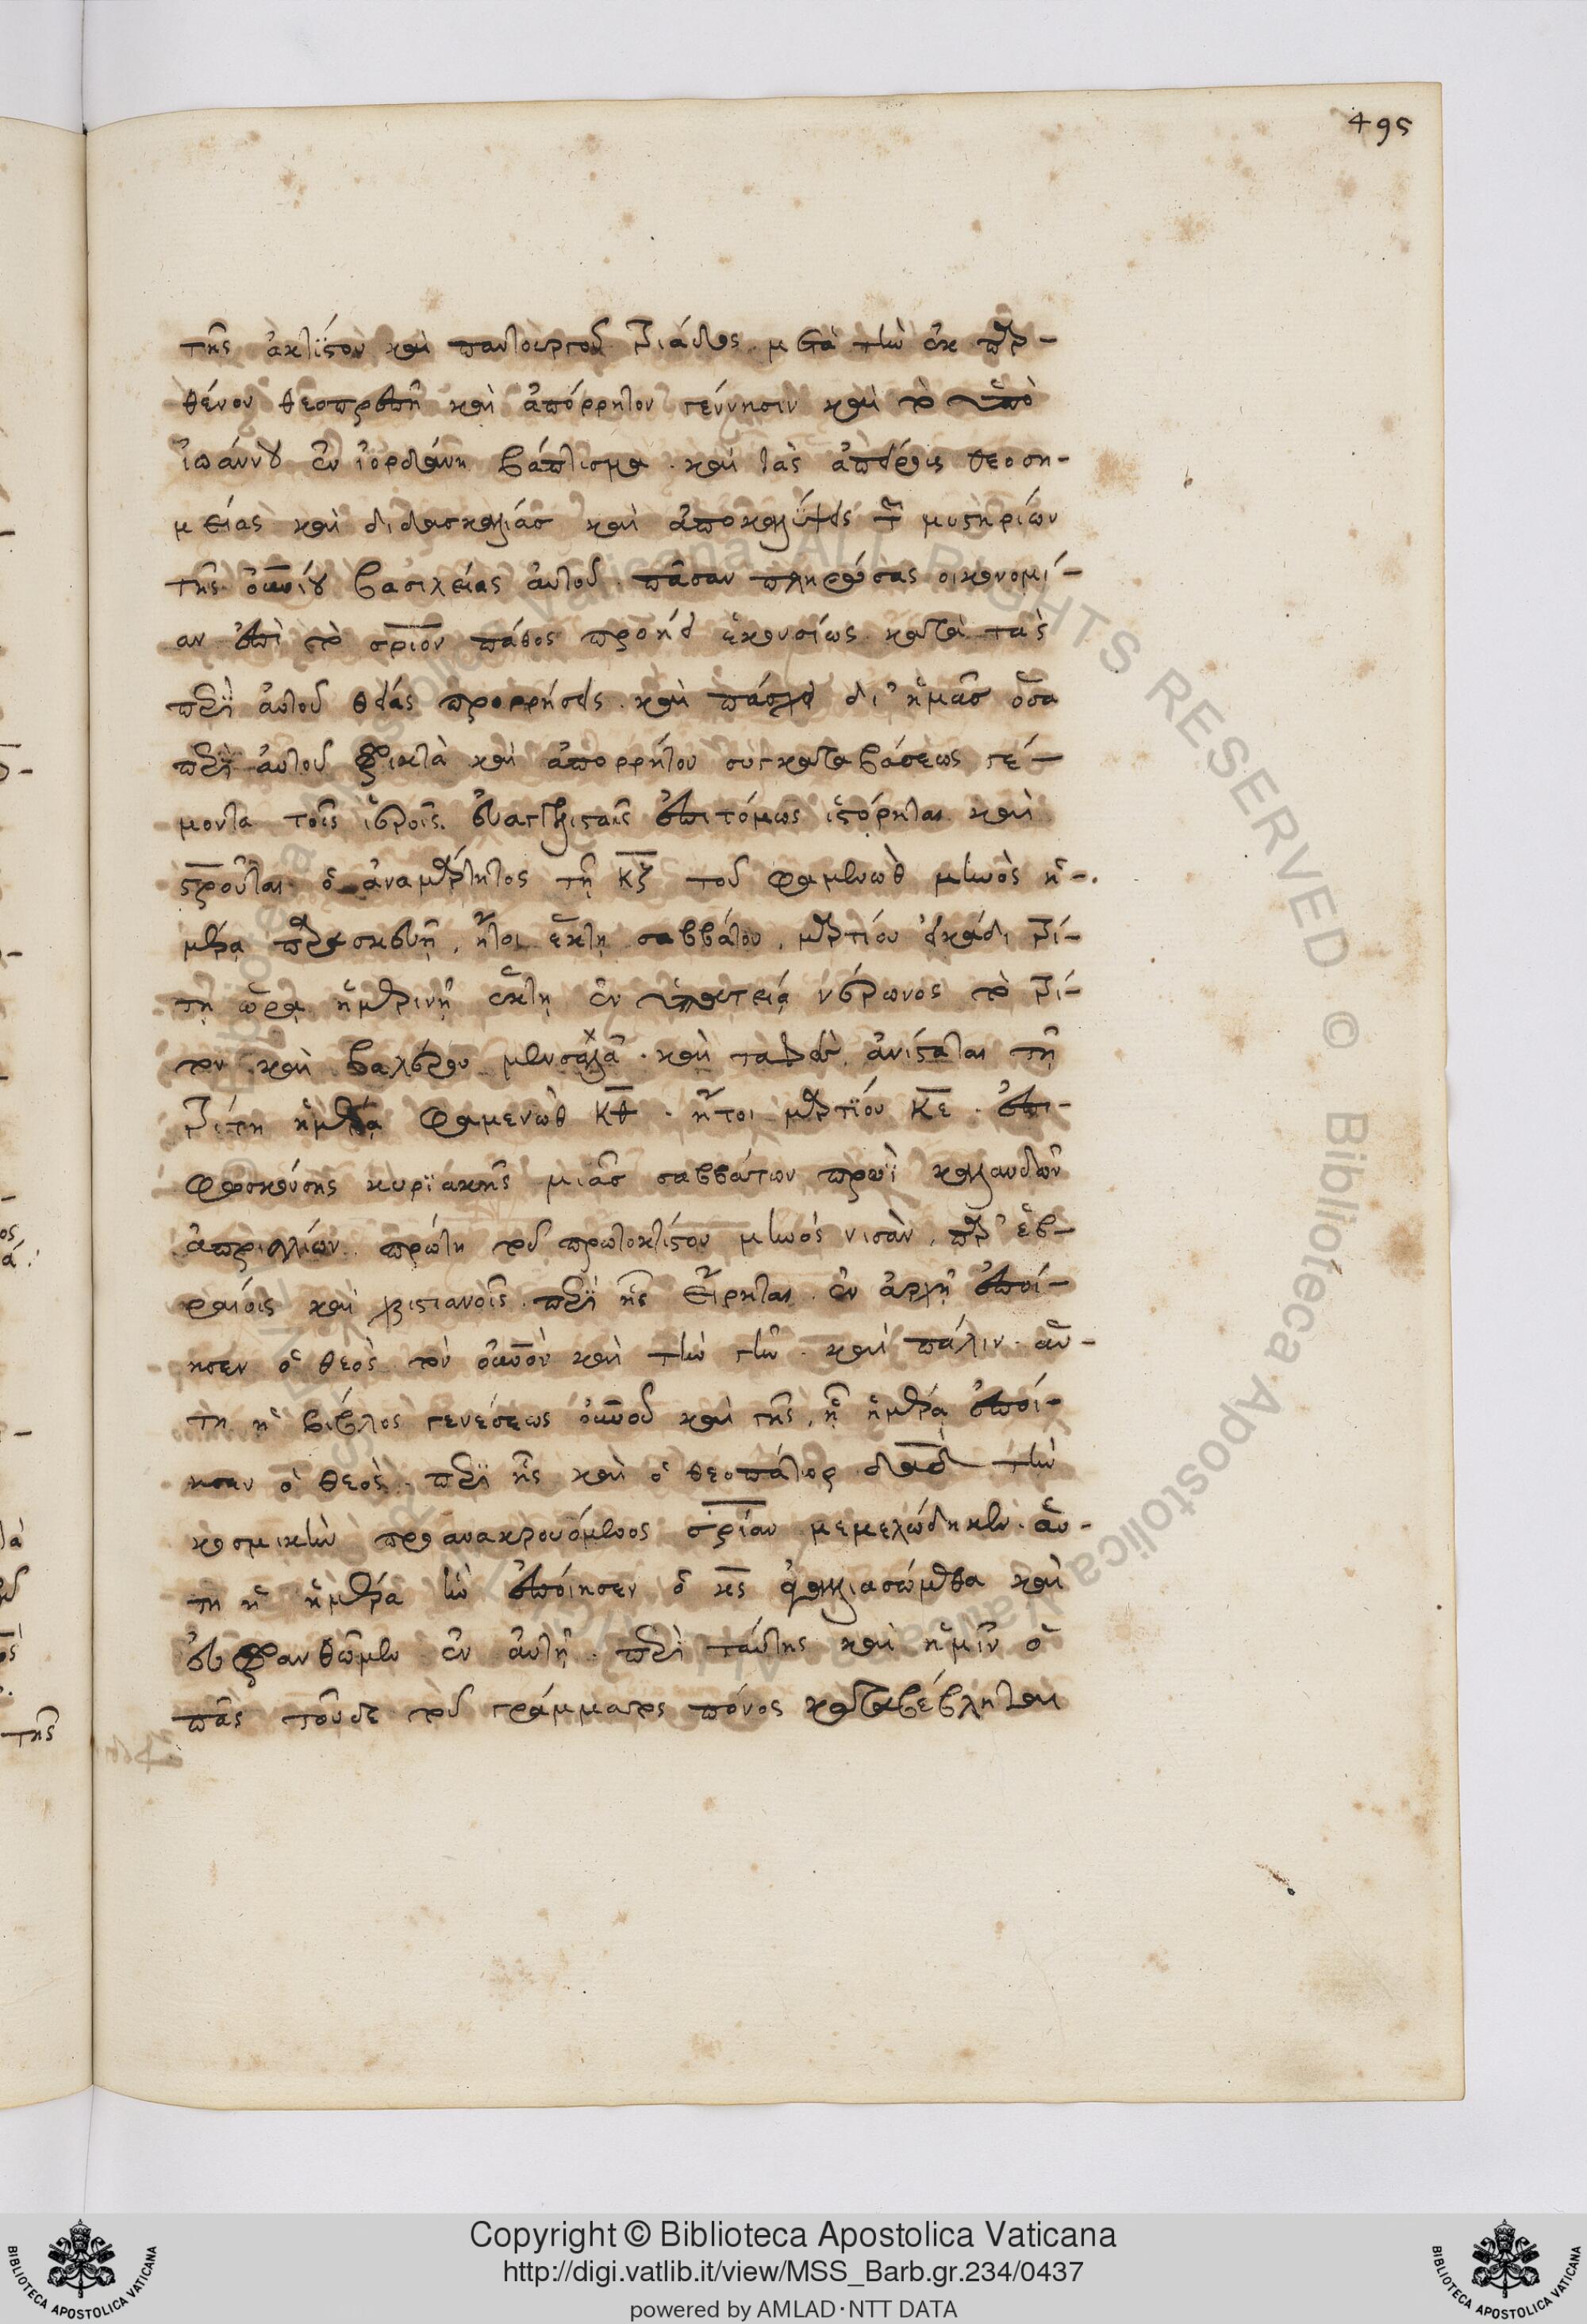 495
τῆς ἀκτίστου καὶ παντουργοῦ τριάδος. μετὰ τὴν ἐκ παρ-
θένου θεοπρεπῆ καὶ ἀπόρρητον γέννησιν καὶ τὸ ὑπὸ
ἰωάννου ἐν ἰορδάνῃ βάπτισμα. καὶ τὰς ἀπείρους θεοση-
μείας καὶ διδασκαλίας καὶ ἀποκαλύψεις τῶν μυστηρίων
τῆς οὐνίου βασιλείας αὐτοῦ. πᾶσαν πληρώσας οἰκονομί-
αν ἐπὶ τὸ σριον πάθος προήει ἑκουσίως κατὰ τὰς
περὶ αὐτοῦ θείας προρρήσεις. καὶ πάσχει δι' ἡμᾶς ὅσα
περὶ αὐτοῦ φρικτὰ καὶ ἀπορρήτου συγκαταβάσεως γέ-
μοντα τοῖς ἱεροῖς εὐαγγελισταῖς ἐπιτόμως ἱστόρηται καὶ
στροῦται ὁ ἀναμάρτητος τῇ κζ τοῦ φαμενὼθ μηνὸς ἡ-
μέρᾳ παρασκευῇ, ἤτοι ἕκτῃ σαββάτου, μαρτίου εἰκάδι τρί-
τῃ ὥρᾳ ἡμερινῇ ἕκτῃ ἐν ὑπατείᾳ νέρωνος τὸ τρί-
τον καὶ βαλερίου μενσάλα. καὶ ταφεὶς ἀνίσταται τῇ
τρίτῃ ἡμέρᾳ φαμενὼθ κθ. ἤτοι μαρτίου κε. ἐπι-
φωσκούσης κυριακῆς μιᾶς σαββάτων πρωῒ καλανδῶν
ἀπριλλίων. πρώτῃ τοῦ πρωτοκτίστου μηνὸς νισὰν, παρ' ἑβ-
ραίοις καὶ χριστιανοῖς. περὶ ἧς εἴρηται. ἐν ἀρχῇ ἐποί-
ησεν ὁ θεὸς τὸν οὐνὸν καὶ τὴν γῆν. καὶ πάλιν. αὕ-
τη ἡ βίβλος γενέσεως οὐνοῦ καὶ γῆς, ᾗ ἡμέρᾳ ἐποί-
ησεν ὁ θεὸς. περὶ ἧς καὶ ὁ θεοπάτωρ δαδ τὴν
κοσμικὴν προανακρουόμενος σρίαν μεμελώδηκεν. αὕ-
τη ἡ ἡμέρα ἣν ἐποίησεν ὁ κς ἀγαλλιασώμεθα καὶ
εὐφρανθῶμεν ἐν αὐτῇ. περὶ ταύτης καὶ ἡμῖν ὁ
πᾶς τοῦδε τοῦ γράμματος πόνος καταβέβληται
Copyright © Biblioteca Apostolica Vaticana
http://digi.vatlib.it/view/MSS_Barb.gr.234/0437
powered by AMLAD·NTT DATA